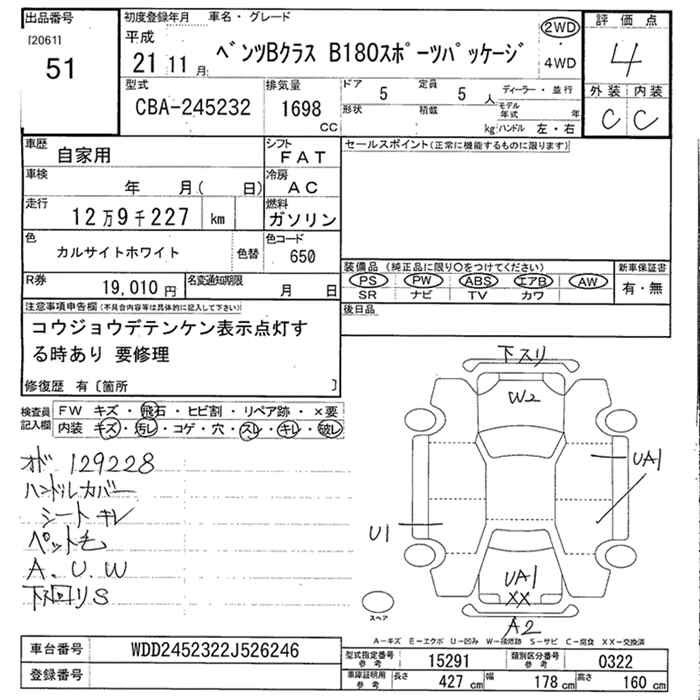 出品番号
[2061]
51
初度登録年月
平成
21 11 月
車名・グレード
ベンツBクラス B180スポーツパッケージ
2WD
・
4WD
評価点
4
外装 内装
C C
型式
CBA-245232
排気量
1698
CC
ドア 5
定員 5 人
形状
積載 kg
ディーラー・並行
モデル年式 年
ハンドル 左・右
車歴
自家用
シフト
FAT
車検
年 月( 日)
冷房
AC
走行
12万9千227 km
燃料
ガソリン
色
カルサイトホワイト
色替
色コード
650
R券
19,010 円
名変通知期限
月 日
セールスポイント(正常に機能するものに限ります)
装備品 (純正品に限り○をつけてください)
PS PW ABS エアB AW
SR ナビ TV カワ
新車保証書
有・無
後日品
注意事項申告欄(不具合内容等は具体的に記入して下さい)
コウジョウデテンケン表示点灯す
る時あり 要修理
修復歴 有〔箇所 〕
検査員
記入欄
FW キズ・飛石・ヒビ割・リペア跡・×要
内装 キズ・汚レ・コゲ・穴・スレ・キレ・破レ
オド 129228
ハンドルカバー
シートキレ
ペット毛
A. U. W
下回りS
下スリ
W2
UA1
U1
UA1
XX
A2
スペア
A-キズ E-エクボ U-凹み W-補修跡 S-サビ C-腐食 XX-交換済
車台番号
WDD2452322J526246
登録番号
型式指定番号
参考
15291
類別区分番号
参考
0322
車庫証明用
参考
長さ 427 cm
幅 178 cm
高さ 160 cm